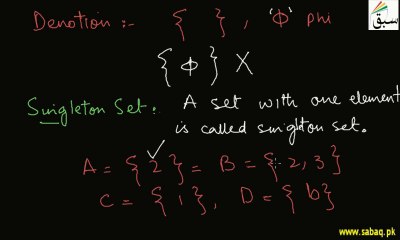 Denotion :- { } , 'Φ' phi
سبق
{ Φ } X
Singleton Set: A set with one element
is called singleton set.
A = { 2 } = B = { -2, 3 }
C = { 1 } , D = { b }
www.sabaq.pk